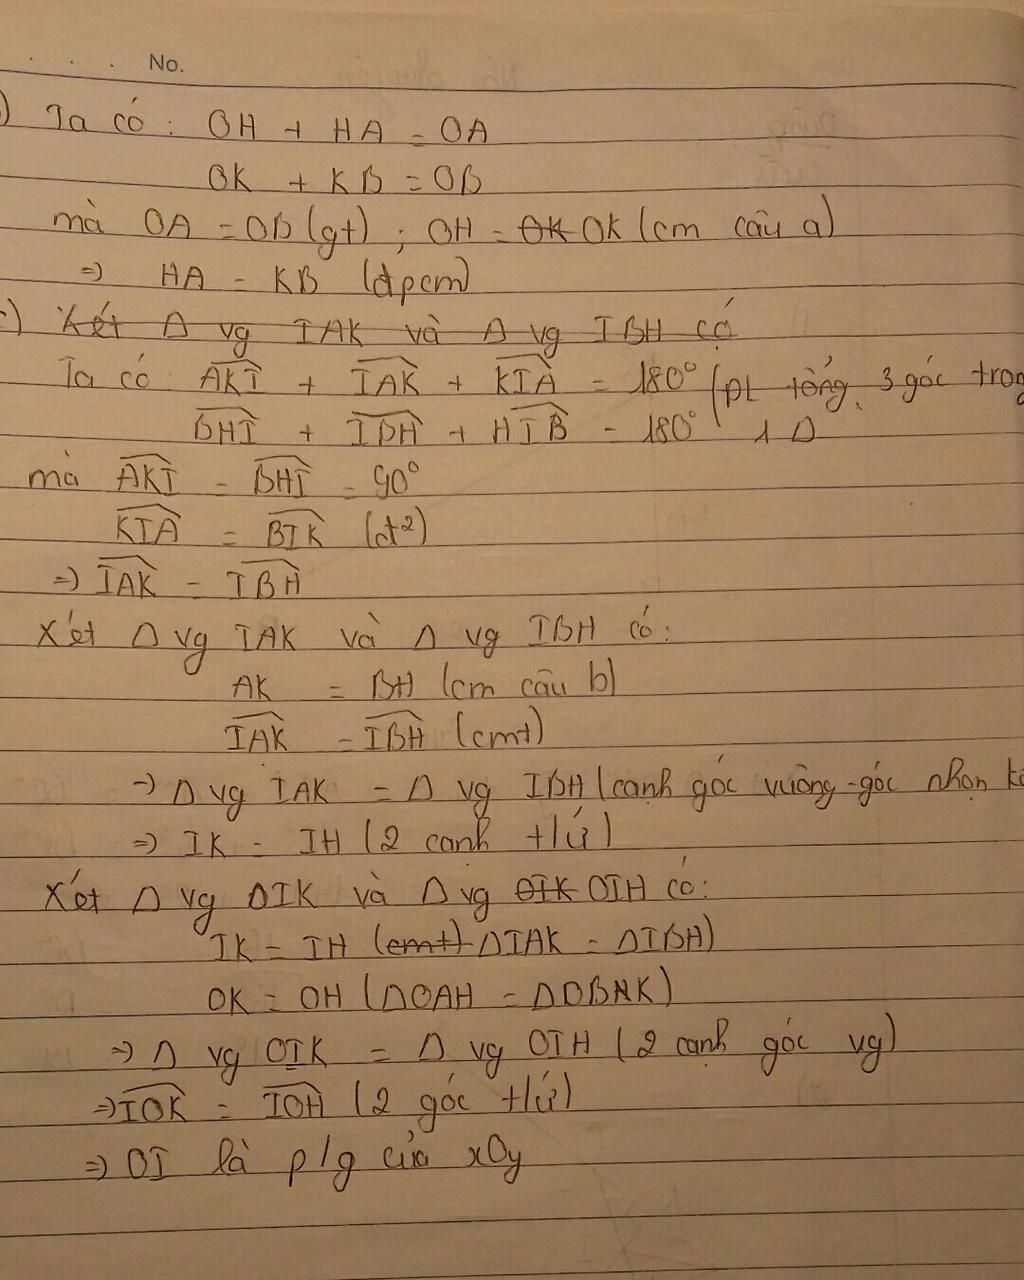 No.
) Ta có : OH + HA = OA
OK + KB = OB
mà OA = OB (gt) ; OH = OK OK (cm câu a)
=> HA = KB (đpcm)
:) Xét Δ vg IAK và Δ vg IBH có
Ta có AKI + IAK + KIA = 180° (pt tổng 3 góc trong
BHI + IBH + HIB = 180° 1 Δ
mà AKI = BHI = 90°
KIA = BIK (đ²)
=> IAK = IBH
Xét Δ vg IAK và Δ vg IBH có:
AK = BH (cm câu b)
IAK = IBH (cmt)
=> Δ vg IAK = Δ vg IBH (cạnh góc vuông-góc nhọn kề
=> IK = IH (2 cạnh t/ứ)
Xét Δ vg OIK và Δ vg OIK OIH có:
IK = IH (cmt) ΔIAK = ΔIBH)
OK = OH (ΔOAH = ΔOBHK)
=> Δ vg OIK = Δ vg OIH (2 cạnh góc vg)
=> IOK = IOH (2 góc t/ứ)
=> OI là p/g của xOy